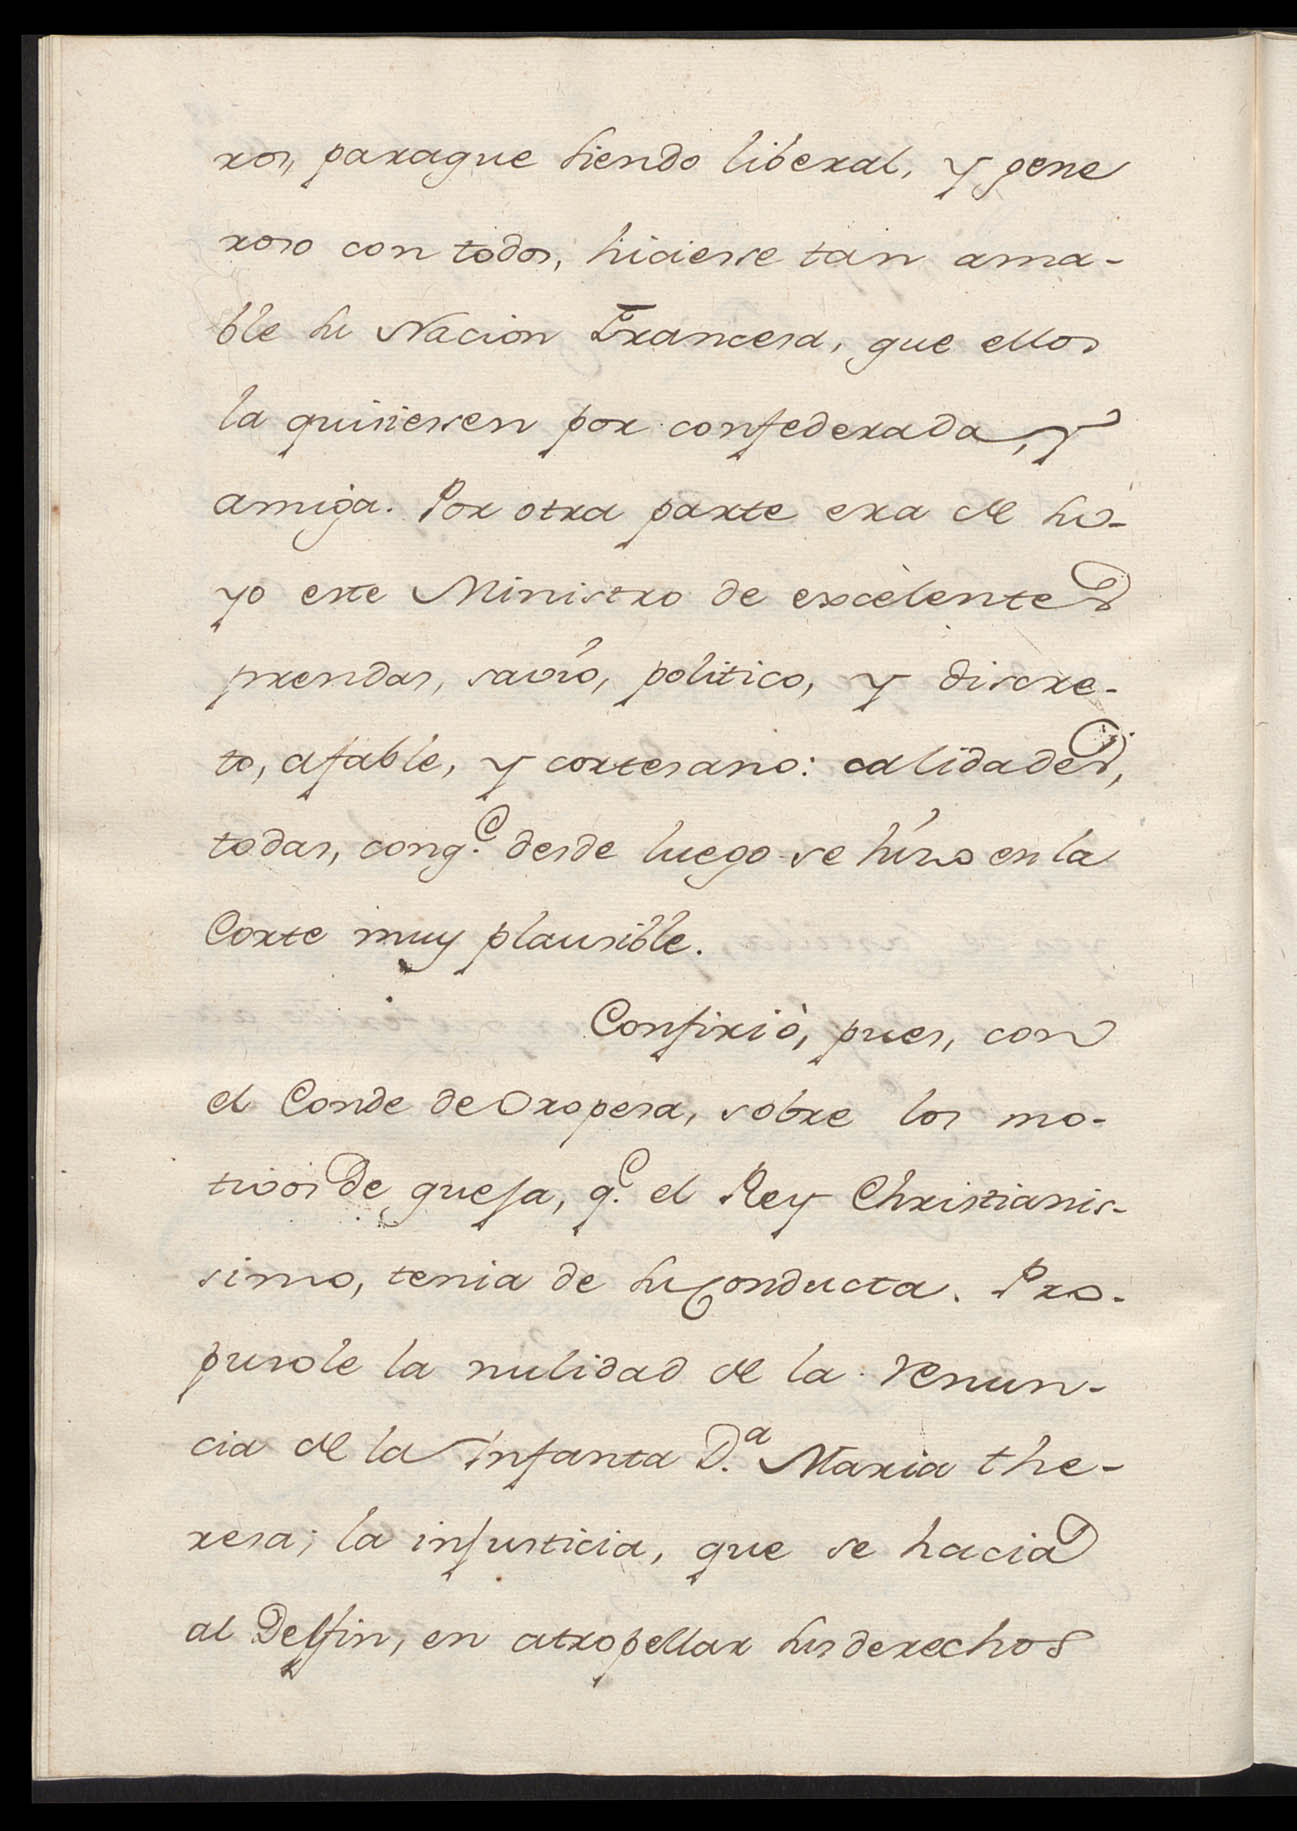 ros, paraque siendo liberal, y gene
roso con todos, hiciesse tan ama-
ble su Nacion Francesa, que ellos
la quisiessen por confederada, y
amiga. Por otra parte era de su-
yo este Ministro de excèlentes
prendas, savio, politico, y discre-
to, afable, y cortesano: calidades,
todas, conq.e desde luego se hizo en la
Corte muy plausible.
Confiriò, pues, con
el Conde de Oropesa, sobre los mo-
tivos de queja, q.e el Rey Christianis-
simo, tenia de su Conducta. Pro-
pusole la nulidad de la renun-
cia de la Infanta D.a Maria the-
resa; la injusticia, que se hacia
al Delfin, en atropellar sus derechos